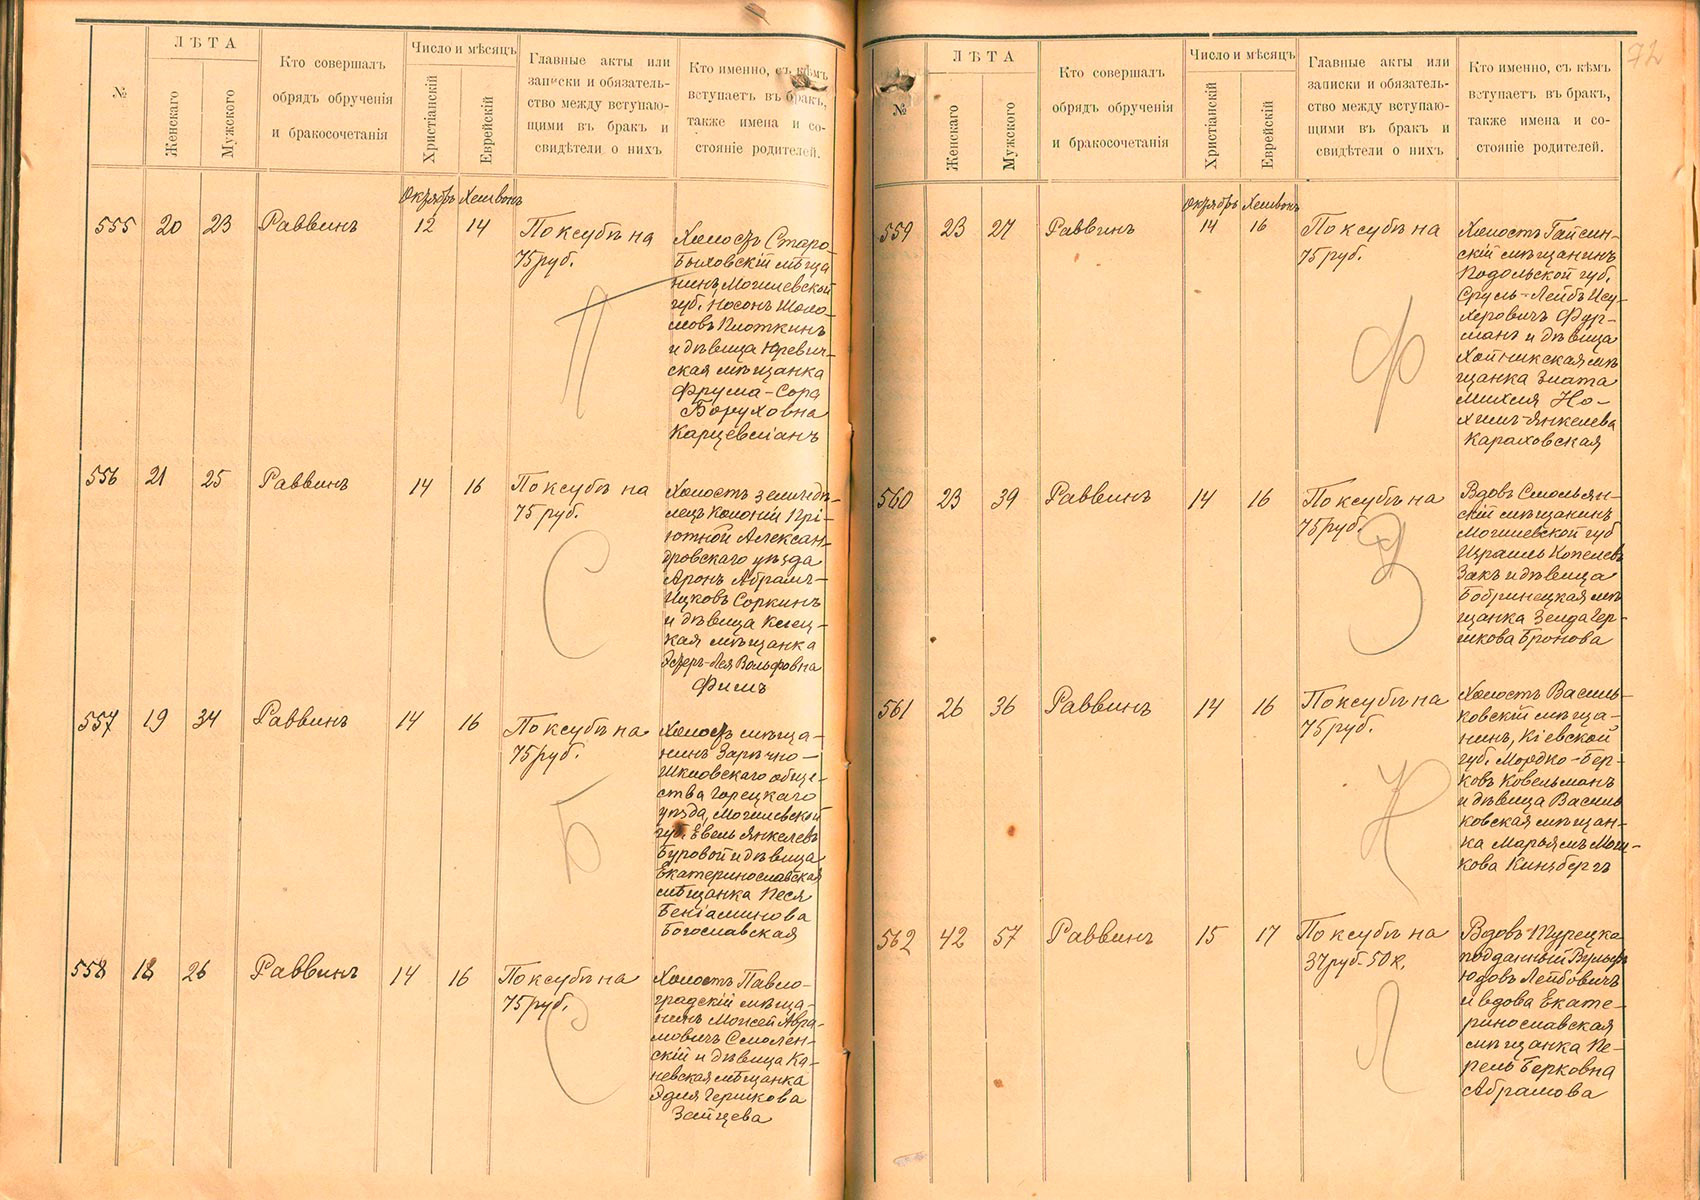 №
ЛѢТА
Женскаго
Мужского
Кто совершалъ
обрядъ обрученія
и бракосочетанія
Число и мѣсяцъ
Христіанскій
Еврейскій
Главные акты или
записки и обязатель-
ство между вступаю-
щими въ бракъ и
свидѣтели о нихъ
Кто именно, съ кѣмъ
вступаетъ въ бракъ,
также имена и со-
стояніе родителей.
Октябрь Хешвонъ
555 20 23 Раввинъ 12 14
По ксубѣ на
75 руб.
П
Холостъ Старо
Быховскій мѣща
нинъ Могилевской
губ. Носонъ Шоло-
мовъ Плоткинъ
и дѣвица Юревич-
ская мѣщанка
Фрума-Сора
Боруховна
556 21 25 Раввинъ 14 16
По ксубѣ на
75 руб.
С
Холостъ землидѣ-
лецъ Колоніи Прі-
ютной Алексан-
дровскаго уѣзда
Аронъ Абрамъ-
Ицковъ Соркинъ
и дѣвица Клец-
кая мѣщанка
Эсѳеръ-Лея Вольфовна
557 19 34 Раввинъ 14 16
По ксубѣ на
75 руб.
Б
Холостъ мѣща-
нинъ Зарѣчно-
Шкловскаго обще-
ства Горецкаго
уѣзда, Могилевской
губ. Евель Янкелевъ
Буровой и дѣвица
Екатеринославская
мѣщанка Песя
Беніаминова
Богославская
558 18 26 Раввинъ 14 16
По ксубѣ на
75 руб.
С
Холостъ Павло-
градскій мѣща-
нинъ Моисей Авра-
мовичъ Смолен-
скій и дѣвица Ка-
невская мѣщанка
Эдля Гершкова
Зайцева
72
№
ЛѢТА
Женскаго
Мужского
Кто совершалъ
обрядъ обрученія
и бракосочетанія
Число и мѣсяцъ
Христіанскій
Еврейскій
Главные акты или
записки и обязатель-
ство между вступаю-
щими въ бракъ и
свидѣтели о нихъ
Кто именно, съ кѣмъ
вступаетъ въ бракъ,
также имена и со-
стояніе родителей.
Октябрь Хешвонъ
559 23 27 Раввинъ 14 16
По ксубѣ на
75 руб.
Ф
Холостъ Гайсин-
скій мѣщанинъ
Подольской губ.
Сруль-Лейбъ Ису-
херовичъ Фур-
манъ и дѣвица
Хойникская мѣ
щанка Злата
Михля Но-
химъ-Янкелева
Караховская
560 23 39 Раввинъ 14 16
По ксубѣ на
75 руб.
З
Вдовъ Смольян-
скій мѣщанинъ
Могилевской губ
Израиль Копелевъ
Закъ и дѣвица
Бобринецкая мѣ
щанка Зелда Гер-
шкова Бронова
561 26 36 Раввинъ 14 16
По ксубѣ на
75 руб.
К
Холостъ Василь-
ковскій мѣща-
нинъ, Кіевской
губ. Мордко-Бер-
ковъ Ковельманъ
и дѣвица Василь
ковская мѣщан-
ка Марьямъ Мош-
кова Кинзбергъ
562 42 57 Раввинъ 15 17
По ксубѣ на
37 руб. 50 к.
Л
Вдовъ Турецко
подданный Вульфъ
Юдовъ Лейбовичъ
и вдова Екате-
ринославская
мѣщанка Пе-
рель Берковна
Абрамова